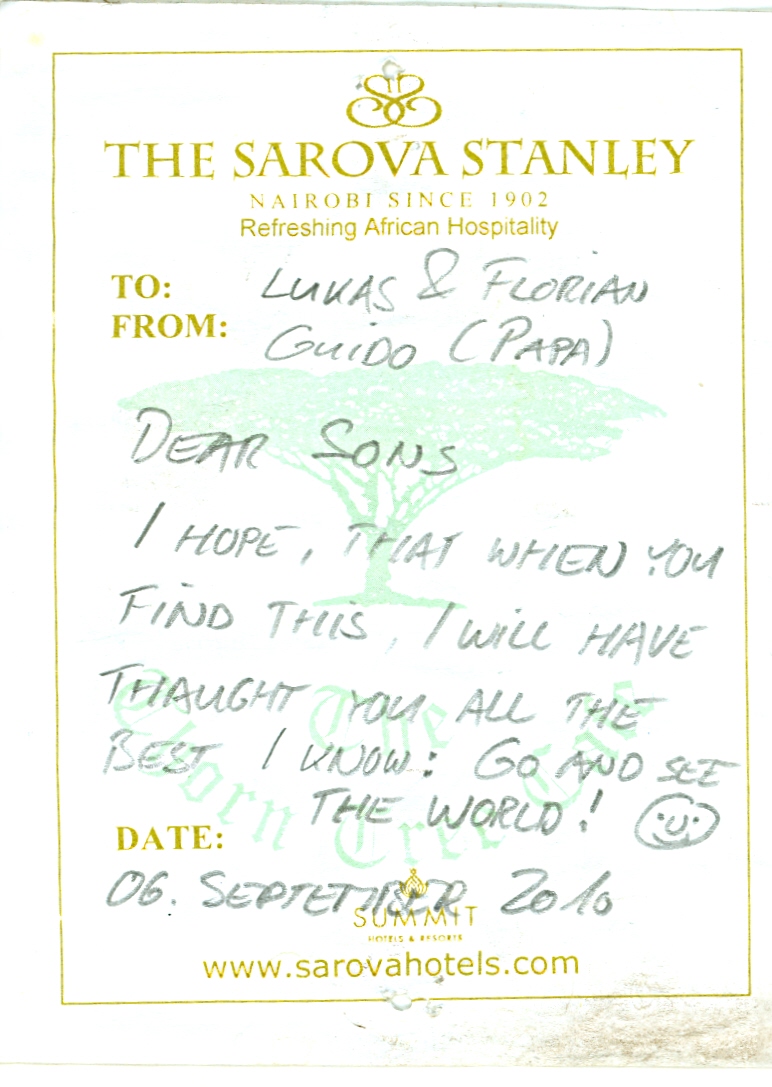 THE SAROVA STANLEY
NAIROBI SINCE 1902
Refreshing African Hospitality
TO: LUKAS & FLORIAN
FROM: GUIDO (PAPA)
DEAR SONS
I HOPE, THAT WHEN YOU
FIND THIS, I WILL HAVE
THAUGHT YOU ALL THE
BEST I KNOW: GO AND SEE
THE WORLD!
The
Thorn Tree Cafe
DATE:
06. SEPTEMBER 2010
SUMMIT
HOTELS & RESORTS
www.sarovahotels.com